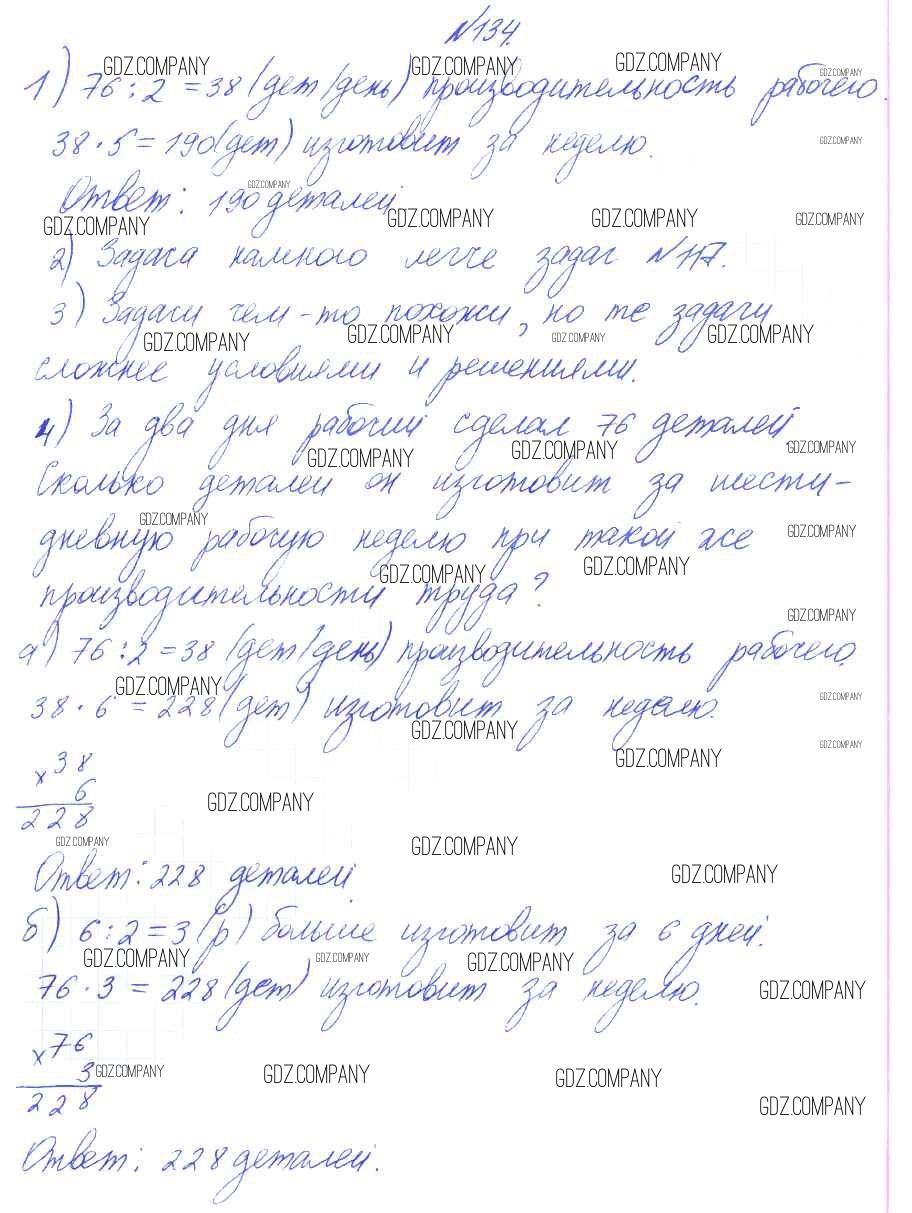 №134.
1) 76 : 2 = 38 (дет/день) производительность рабочего.
38 · 5 = 190 (дет) изготовит за неделю.
Ответ: 190 деталей
2) Задача намного легче задач №117.
3) Задачи чем-то похожи, но те задачи
сложнее условиями и решениями.
4) За два дня рабочий сделал 76 деталей
Сколько деталей он изготовит за шести-
дневную рабочую неделю при такой же
производительности труда?
а) 76 : 2 = 38 (дет/день) производительность рабочего.
38 · 6 = 228 (дет) изготовит за неделю.
× 38
6
228
Ответ: 228 деталей
б) 6 : 2 = 3 (р) больше изготовит за 6 дней.
76 · 3 = 228 (дет) изготовит за неделю.
× 76
3
228
Ответ: 228 деталей.
GDZ.COMPANY